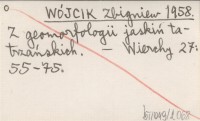 WÓJCIK Zbigniew 1958.
Z geomorfologii jaskiń ta-
trzańskich. — Wierchy 27:
55-75.